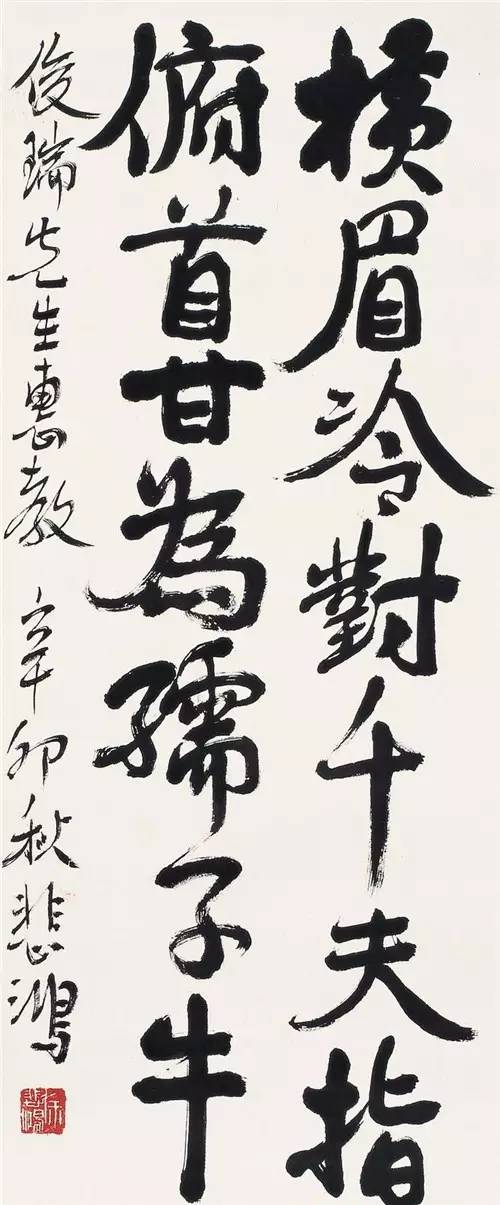 横眉冷對千夫指
俯首甘为孺子牛
俊瑞先生惠教 辛卯秋 悲鴻